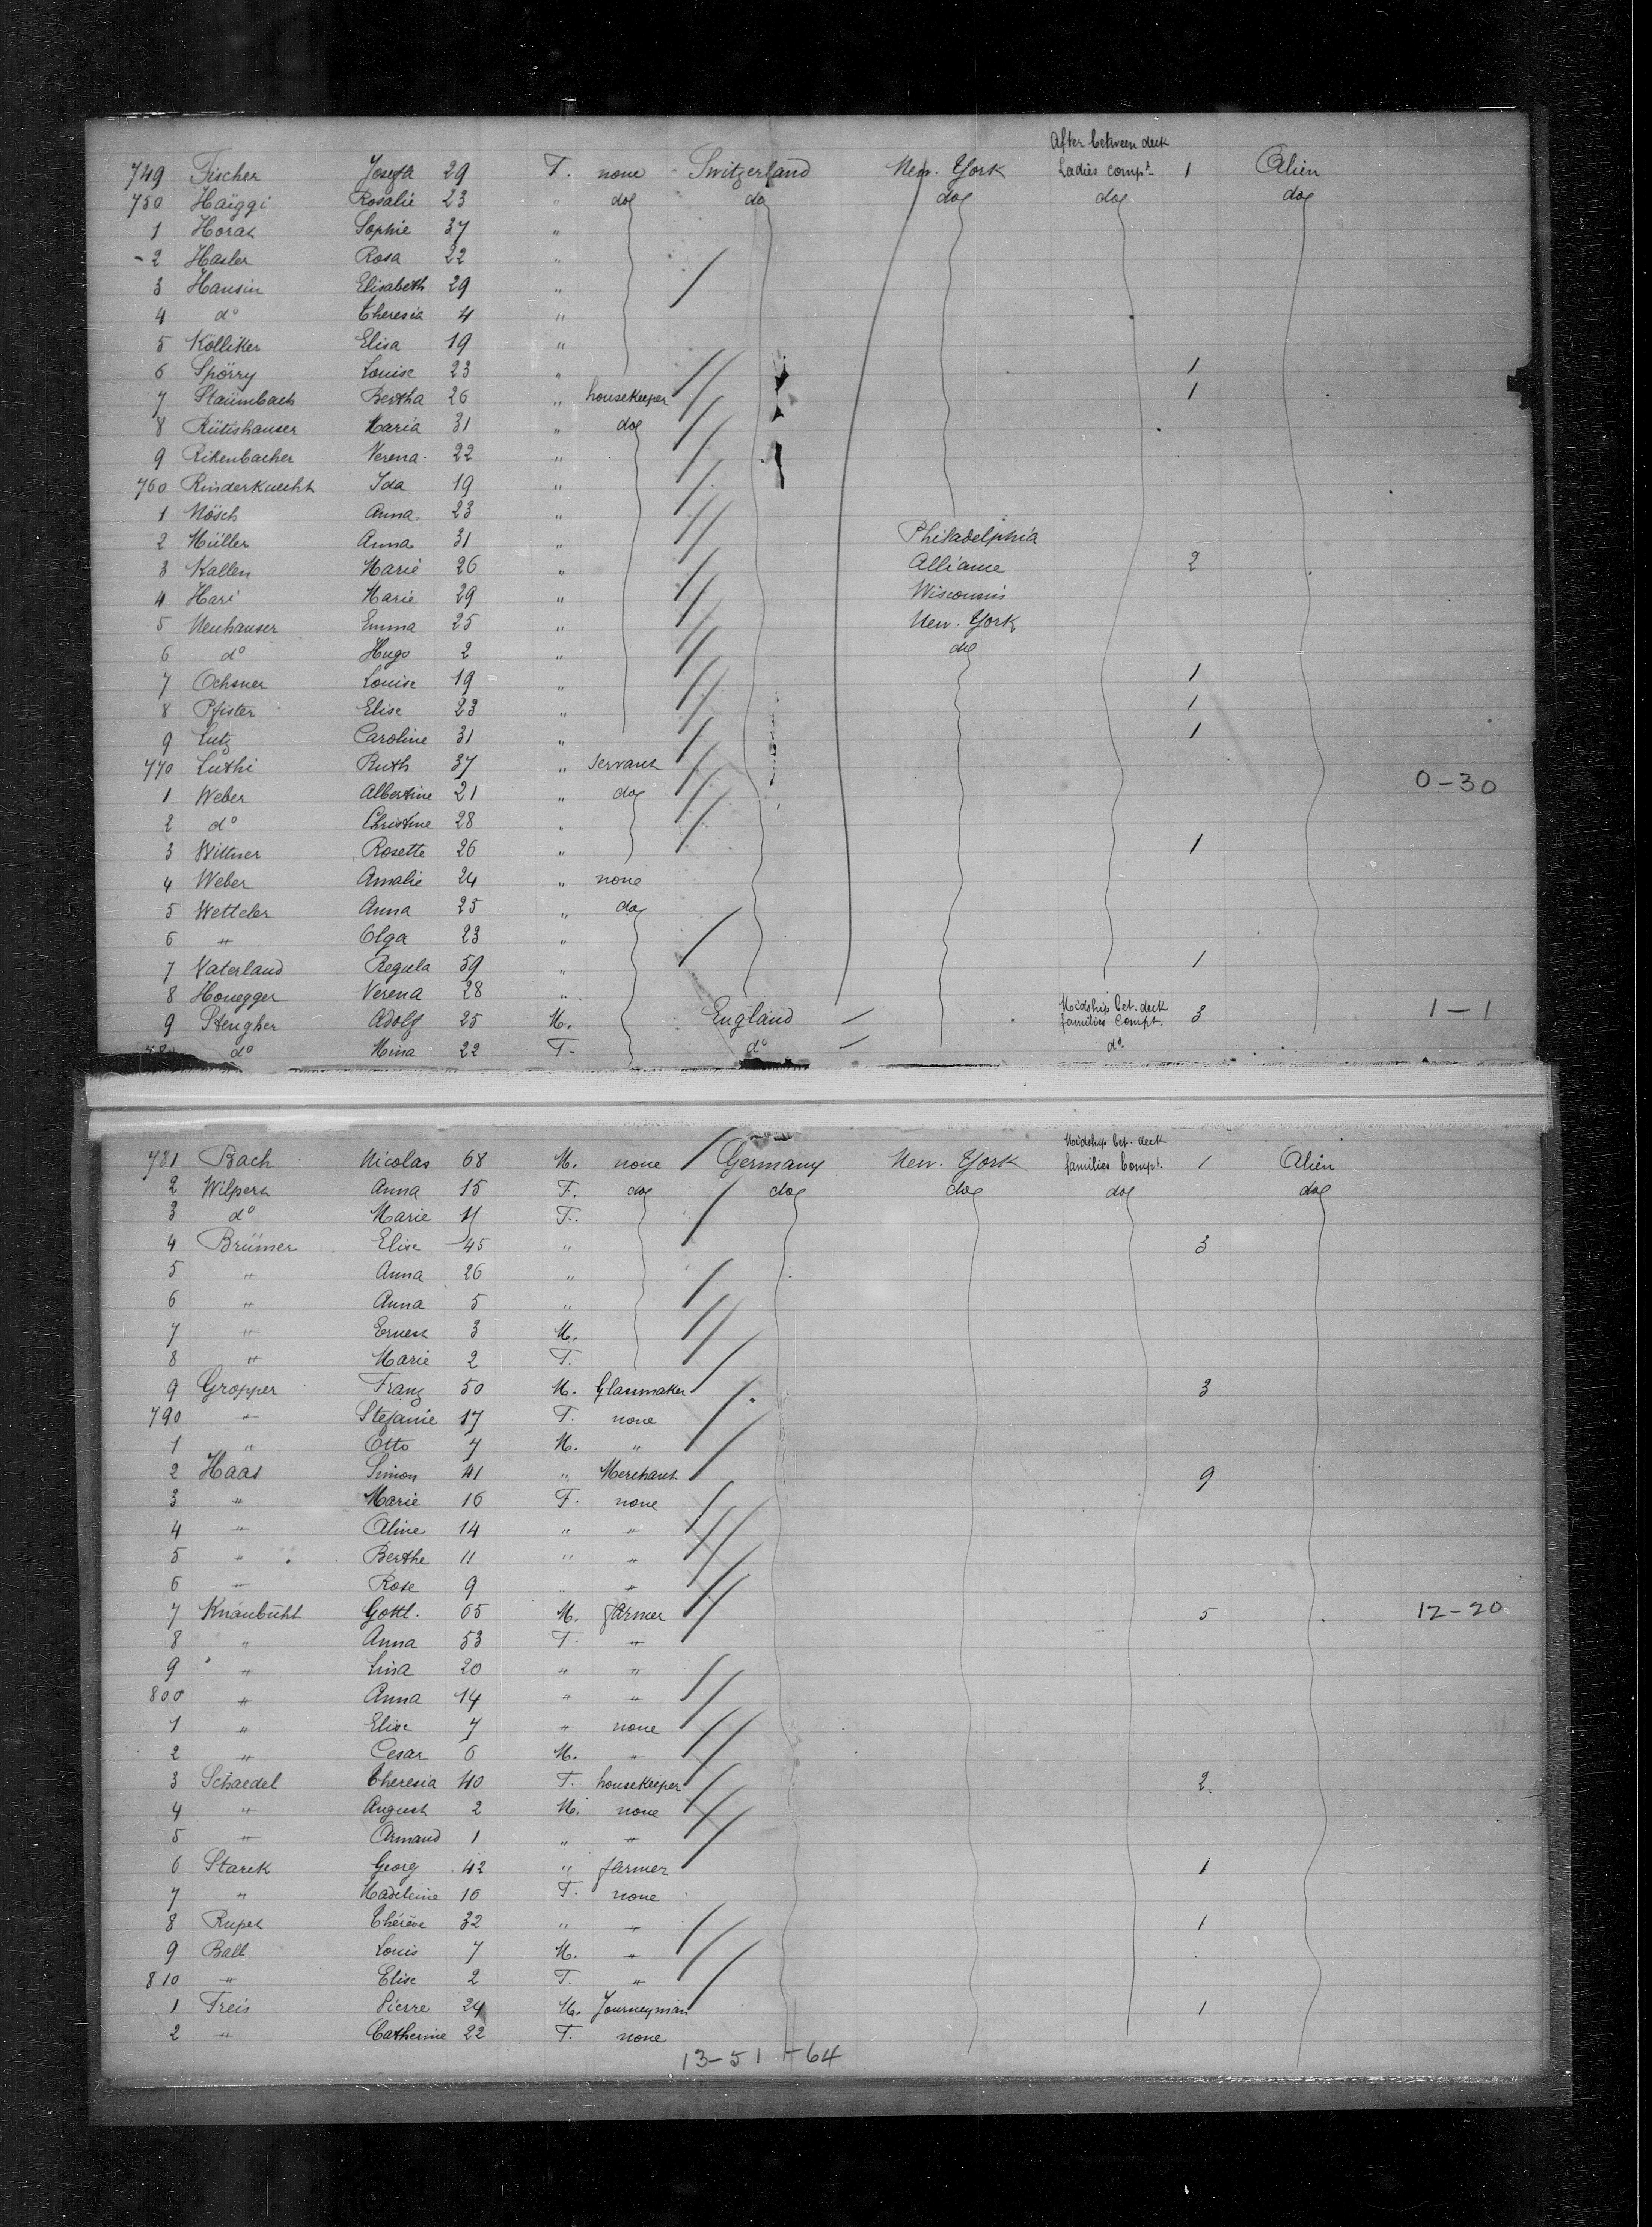 After between deck
749 Fischer Josefa 29 F. none Switzerland New. York Ladies compt. 1 Alien
750 Haiggi Rosalie 23 " do do do do do
1 Horat Sophie 37 "
- 2 Hasler Rosa 22 "
3 Hansin Elisabeth 29 "
4 do Theresia 4 "
5 Kölliker Elisa 19 "
6 Spörry Louise 23 " 1
7 Staümbach Bertha 26 " housekeeper 1
8 Rütishauser Maria 31 " do
9 Rikenbacher Verena 22 "
760 Rinderknecht Ida 19 "
1 Mösch Anna 23 "
2 Müller Anna 31 " Philadelphia
3 Kallen Marie 26 " Alliance 2
4 Hari Marie 29 " Wisconsin
5 Neuhauser Emma 25 " New. York
6 do Hugo 2 " do
7 Ochsner Louise 19 " 1
8 Pfister Elise 23 " 1
9 Lutz Caroline 31 " 1
770 Luthi Ruth 37 " servant 0-30
1 Weber Albertine 21 " do
2 do Christine 28 "
3 Wittner Rosette 26 " 1
4 Weber Amalie 24 " none
5 Wetteler Anna 25 " do
6 " Olga 23 "
7 Vaterland Regula 59 " 1
8 Honegger Verena 28 "
Midship bet. deck
9 Stengher Adolf 25 M. England families Compt. 3 1-1
do Mina 22 F. do do
Midship bet. deck
781 Bach Nicolas 68 M. none Germany New. York families Compt. 1 Alien
2 Wilpert Anna 15 F. do do do do do
3 do Marie 11 F.
4 Brümer Elise 45 " 3
5 " Anna 26 "
6 " Anna 5 "
7 " Ernest 3 M.
8 " Marie 2 F.
9 Gropper Franz 50 M. Glassmaker 3
790 " Stefanie 17 F. none
1 " Otto 7 M. "
2 Haas Simon 41 " Merchant 9
3 " Marie 16 F. none
4 " Aline 14 " "
5 " Berthe 11 " "
6 " Rose 9 " "
7 Knäubühl Gottl. 65 M. farmer 5 12-20
8 " Anna 53 F. "
9 " Lina 20 " "
800 " Anna 14 " "
1 " Elise 7 " none
2 " Cesar 6 M. "
3 Schaedel Theresia 40 F. housekeeper 2
4 " August 2 M. none
5 " Armand 1 " "
6 Starck Georg 42 " farmer 1
7 " Madeleine 16 F. none
8 Rupet Thérèse 32 " " 1
9 Ball Louis 7 M. "
810 " Elise 2 F. "
1 Freis Pierre 24 M. Journeyman 1
2 " Catherine 22 F. none
13-51 +64